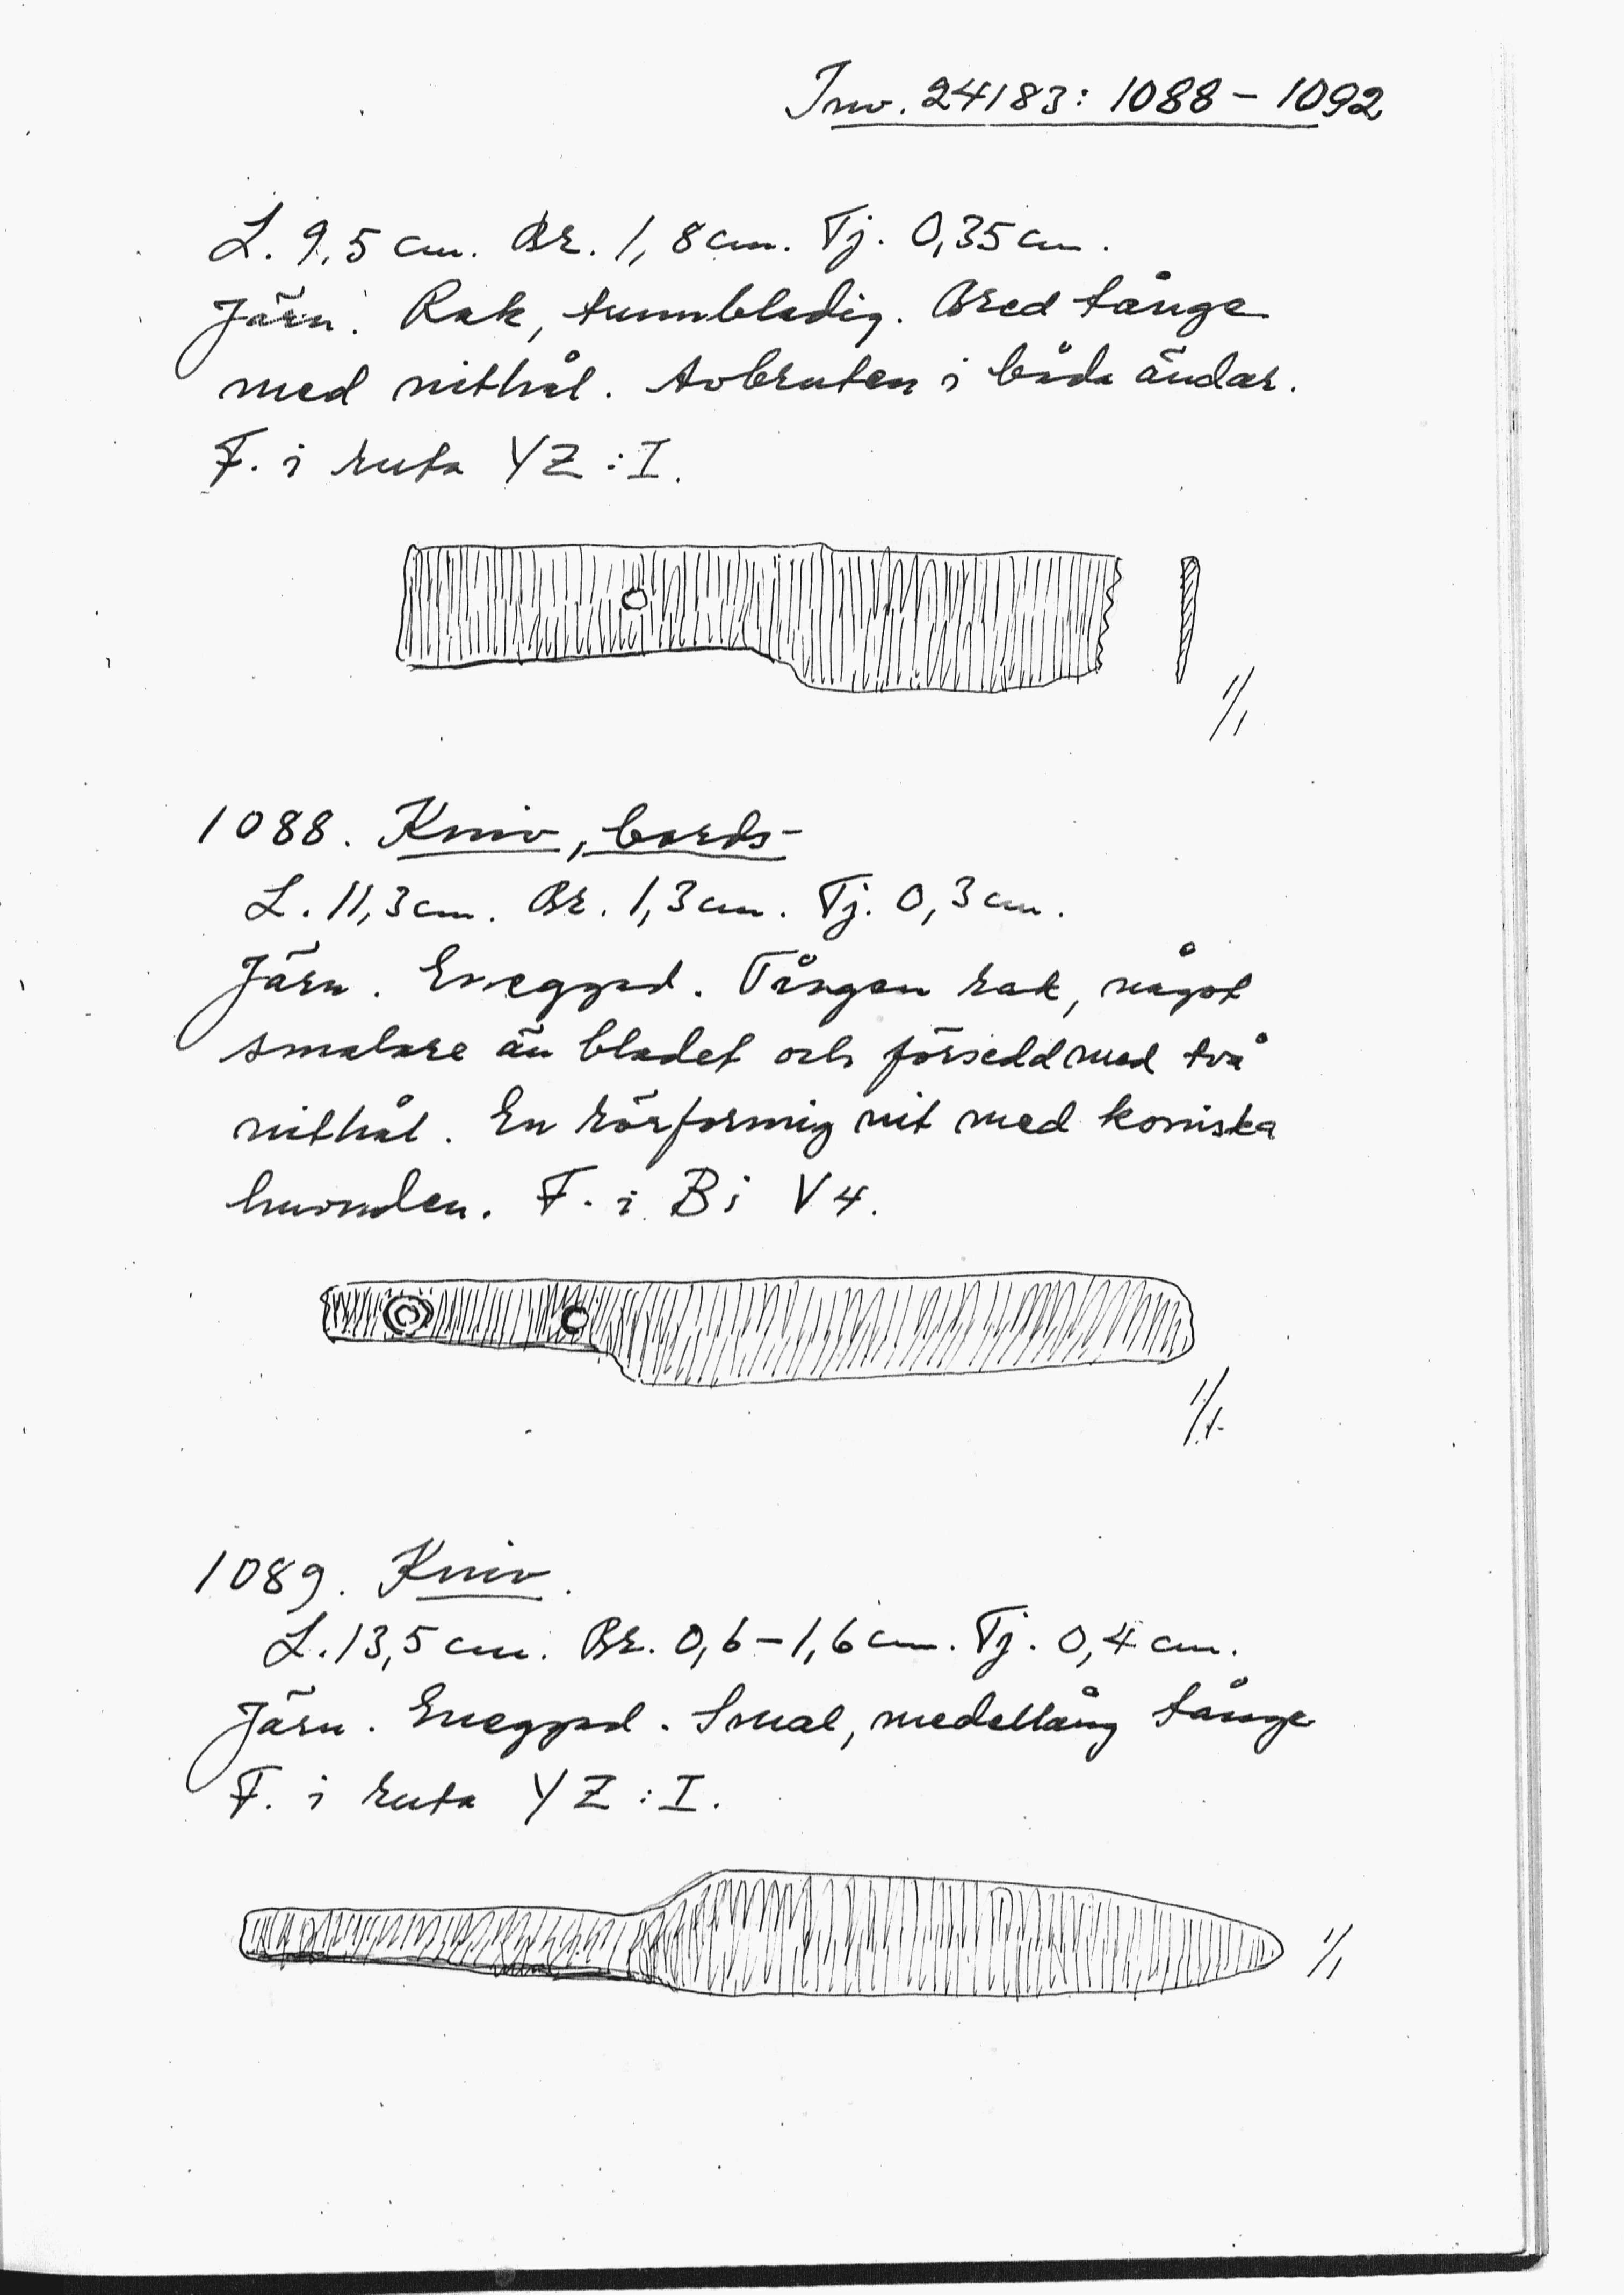 Inv. 24183: 1088 - 1092
L. 9,5 cm. Br. 1,8 cm. Tj. 0,35 cm.
Järn. Rak, tunnbladig. Bred tånge
med nithål. Avbruten i båda ändar.
F. i ruta YZ:I.
1/1
1088. Kniv, bords-
L. 11,3 cm. Br. 1,3 cm. Tj. 0,3 cm.
Järn. Eneggad. Tången rak, något
smalare än bladet och försedd med två
nithål. En rörformig nit med koniska
huvuden. F. i Bi V4.
1/1
1089. Kniv.
L. 13,5 cm. Br. 0,6-1,6 cm. Tj. 0,4 cm.
Järn. Eneggad. Smal, medellång tånge
F. i ruta YZ:I.
1/1